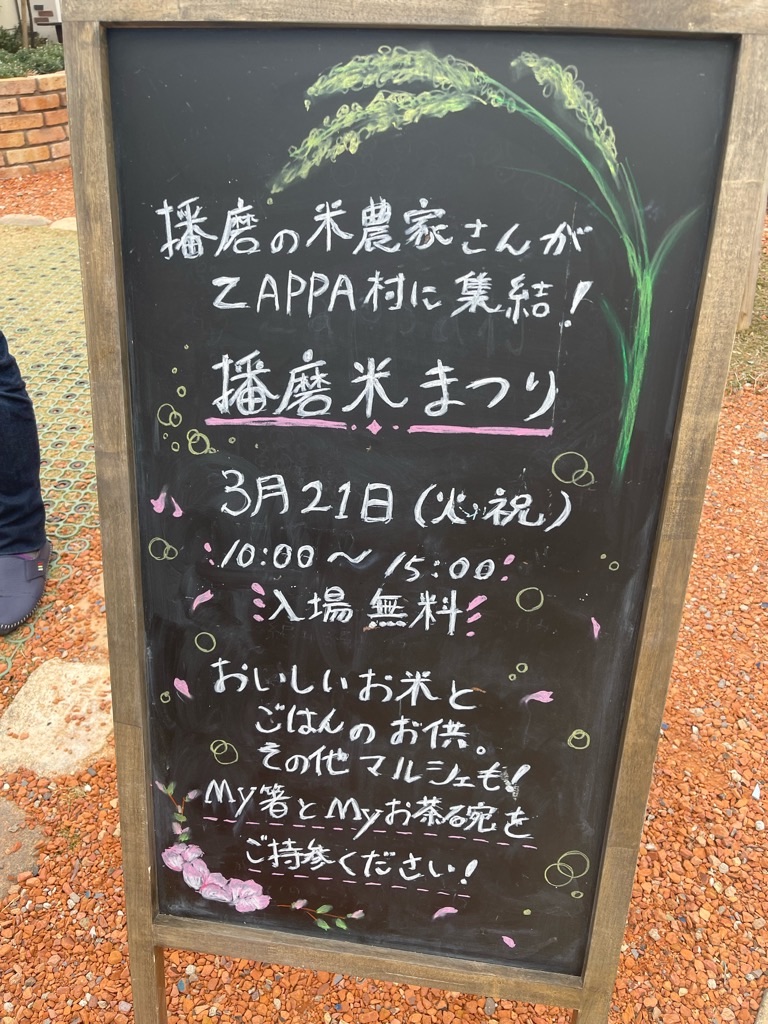 播磨の米農家さんが
ZAPPA村に集結!
播磨米まつり
3月21日(火・祝)
10:00〜15:00
入場無料
おいしいお米と
ごはんのお供。
その他マルシェも!
My箸とMyお茶碗を
ご持参ください!